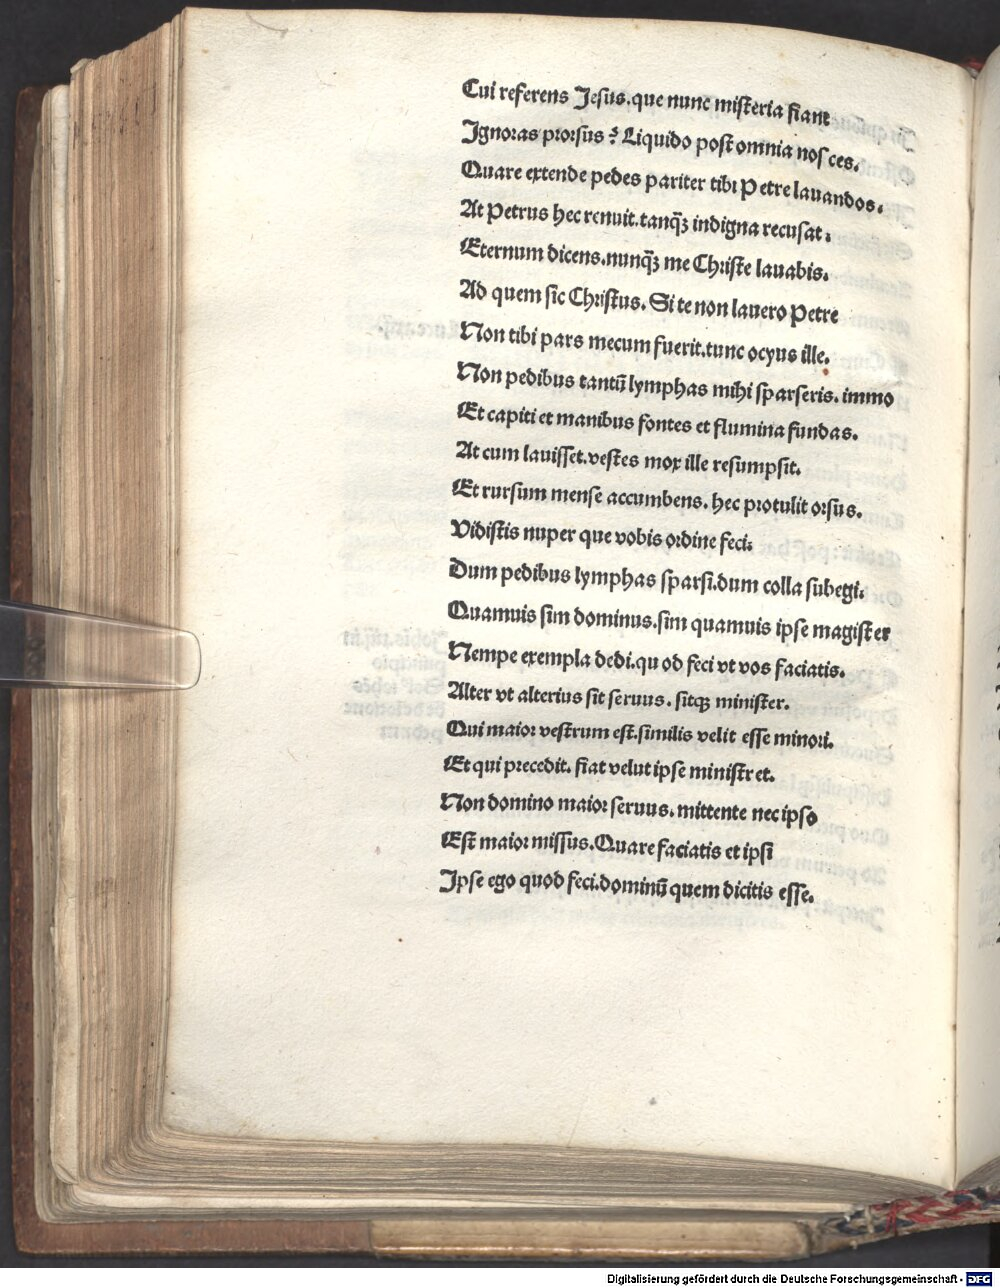 Cui referens Jesus.que nunc misteria fiant
Ignoras prorsus? Liquido post omnia nosces.
Quare extende pedes pariter tibi Petre lauandos.
At Petrus hec renuit.tanqꝫ indigna recusat.
Eternum dicens.nunqꝫ me Christe lauabis.
Ad quem sic Christus. Si te non lauero Petre
Non tibi pars mecum fuerit.tunc ocyus ille.
Non pedibus tantū lymphas mihi sparseris. immo
Et capiti et manibus fontes et flumina fundas.
At cum lauisset.vestes mox ille resumpsit.
Et rursum mense accumbens. hec protulit orsus.
Vidistis nuper que vobis ordine feci.
Dum pedibus lymphas sparsi.dum colla subegi.
Quamuis sim dominus.sim quamuis ipse magister
Nempe exempla dedi.quod feci vt vos faciatis.
Alter vt alterius sit seruus. sitqꝫ minister.
Qui maior vestrum est.similis velit esse minori.
Et qui precedit. fiat velut ipse ministret.
Non domino maior seruus. mittente nec ipso
Est maior missus.Quare faciatis et ipsi
Ipse ego quod feci.dominū quem dicitis esse.
Digitalisierung gefördert durch die Deutsche Forschungsgemeinschaft - DFG